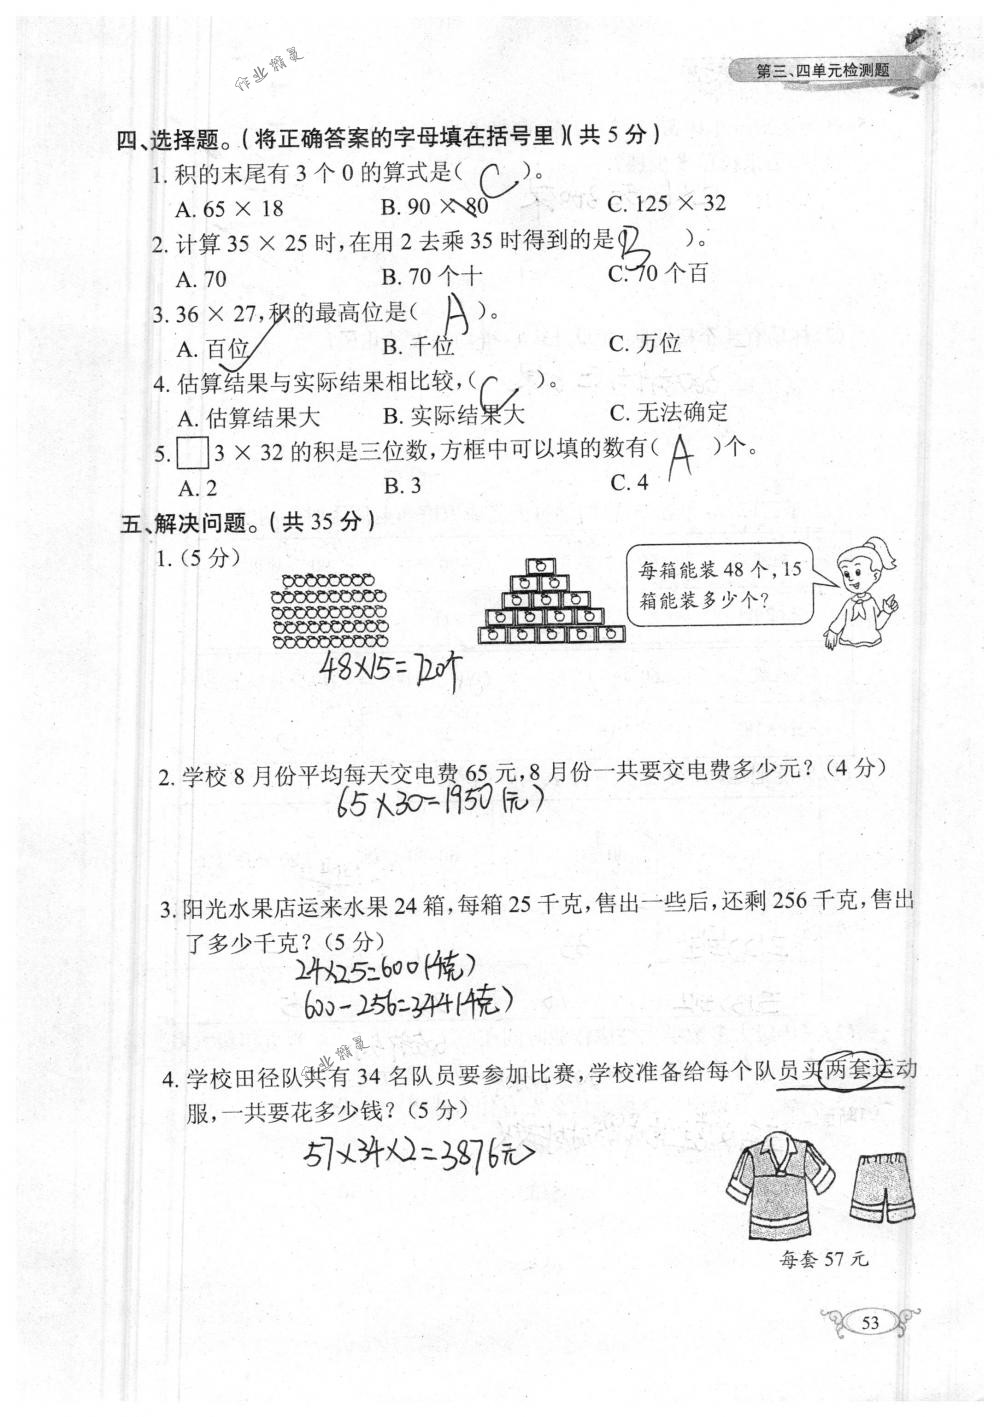 作业精灵
第三、四单元检测题
四、选择题。(将正确答案的字母填在括号里)(共 5 分)
1. 积的末尾有 3 个 0 的算式是( C )。
A. 65 × 18 B. 90 × 80 C. 125 × 32
2. 计算 35 × 25 时,在用 2 去乘 35 时得到的是( B )。
A. 70 B. 70 个十 C. 70 个百
3. 36 × 27,积的最高位是( A )。
A. 百位 B. 千位 C. 万位
4. 估算结果与实际结果相比较,( C )。
A. 估算结果大 B. 实际结果大 C. 无法确定
5. □3 × 32 的积是三位数,方框中可以填的数有( A )个。
A. 2 B. 3 C. 4
五、解决问题。(共 35 分)
1. (5 分)
每箱能装 48 个,15
箱能装多少个?
48×15=720个
2. 学校 8 月份平均每天交电费 65 元,8 月份一共要交电费多少元?(4 分)
65×30=1950(元)
3. 阳光水果店运来水果 24 箱,每箱 25 千克,售出一些后,还剩 256 千克,售出
了多少千克?(5 分)
24×25=600(千克)
600-256=344(千克)
作业精灵
4. 学校田径队共有 34 名队员要参加比赛,学校准备给每个队员买两套运动
服,一共要花多少钱?(5 分)
57×34×2=3876元
每套 57 元
53